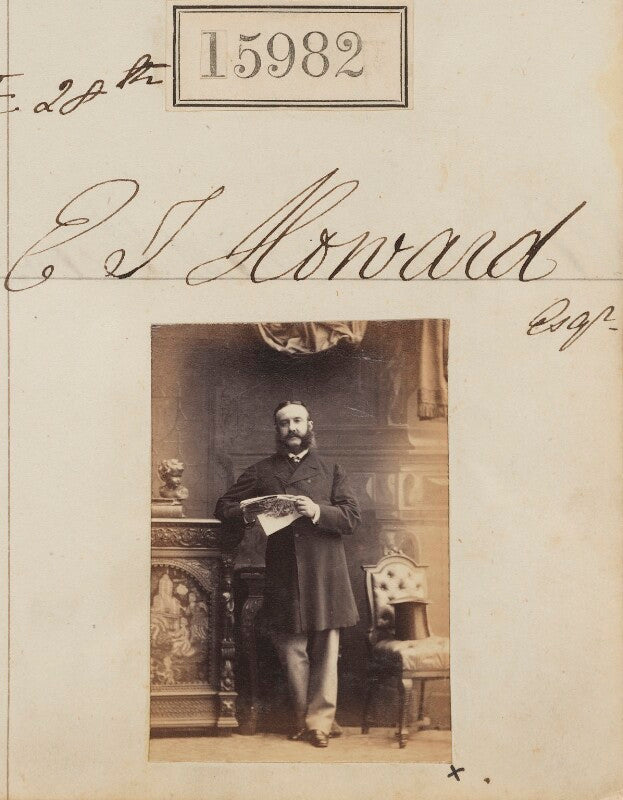 15982
28th
E J Howard
Esqr.
x